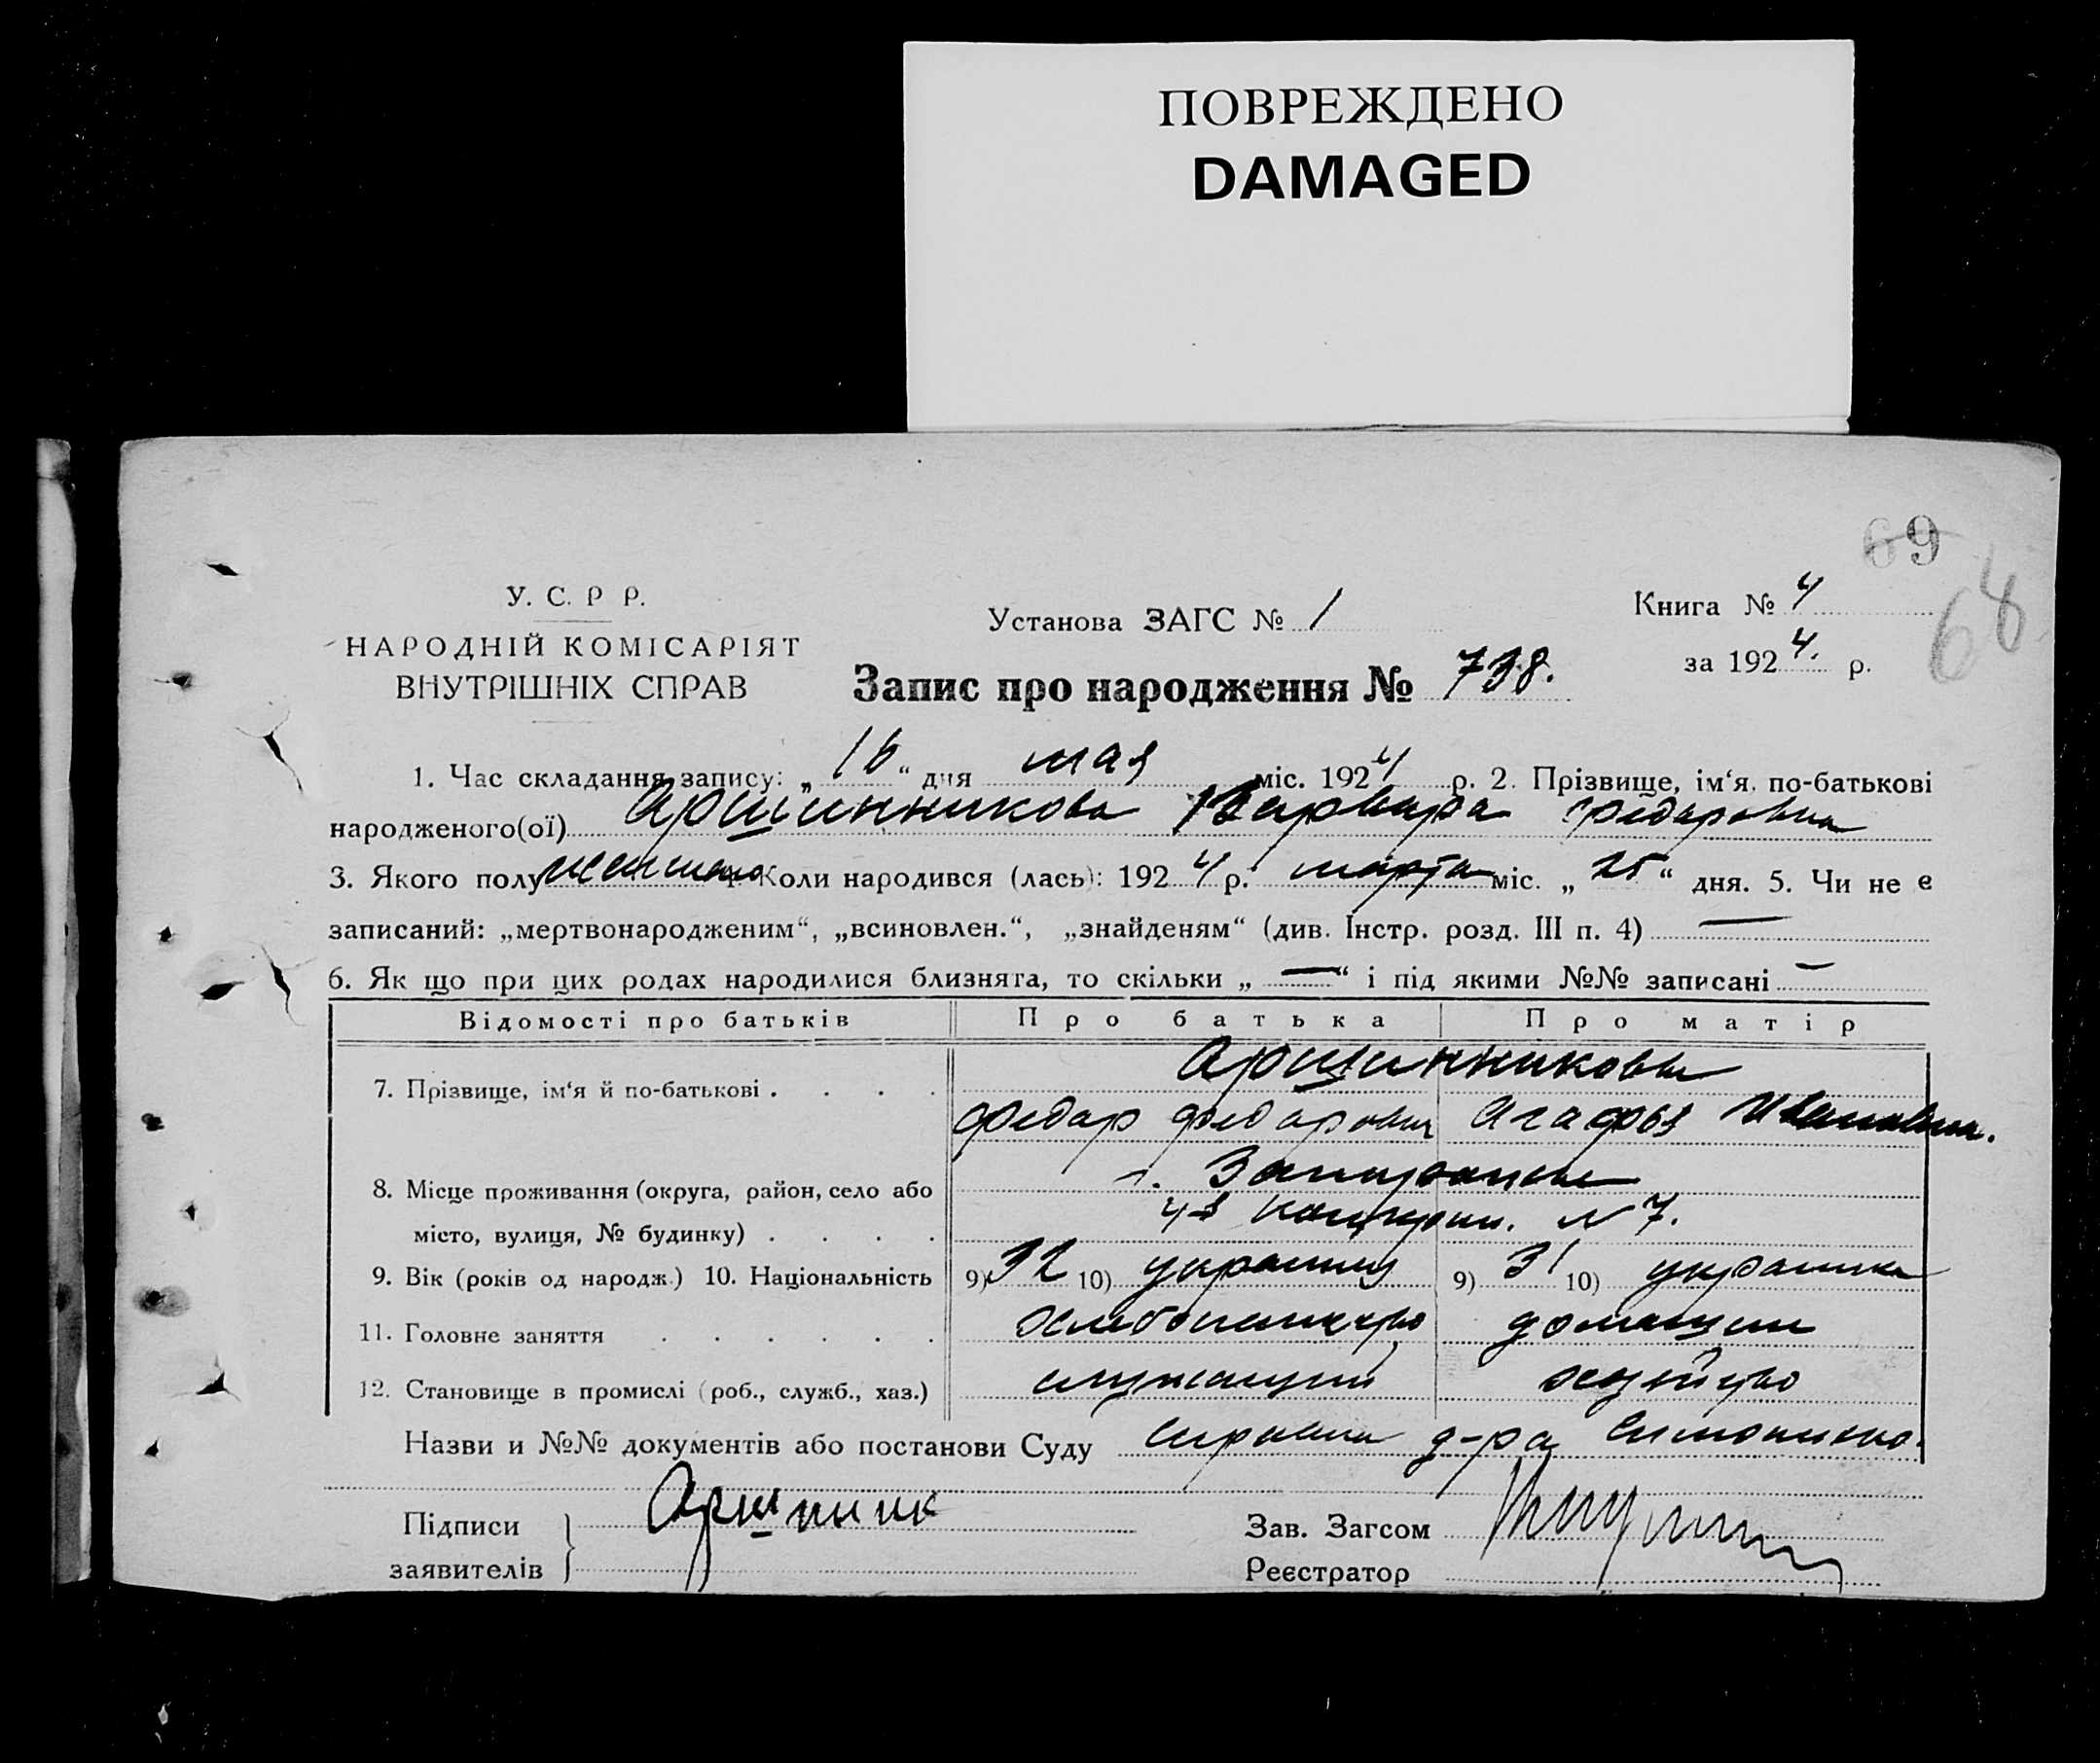 ПОВРЕЖДЕНО
DAMAGED
69
68
У. С. Р Р.
НАРОДНІЙ КОМІСАРІЯТ
ВНУТРІШНІХ СПРАВ
Установа ЗАГС № 1
Книга № 4
за 1924. р.
Запис про народження № 738.
1. Час складання запису: „16“ дня мая міс. 1924 р. 2. Прізвище, ім‘я, по-батькові
народженого(ої) Аршинникова Варвара Федаровна
3. Якого полу женского 4. Коли народився (лась): 1924 р. марта міс. „25“ дня. 5. Чи не є
записаний: „мертвонародженим“, „всиновлен.“, „знайденям“ (див. Інстр. розд. III п. 4) —
6. Як що при цих родах народилися близнята, то скільки „—“ і під якими №№ записані —
Відомості про батьків Про батька Про матір
7. Прізвище, ім‘я й по-батькові . . . . Аршинниковы
Федар Федарович Агафья Ивановна.
8. Місце проживання (округа, район, село або г. Запорожье
місто, вулиця, № будинку) . . . . N 7.
9. Вік (років од народж.) 10. Національність 9) 32 10) украинец 9) 31 10) украинка
11. Головне заняття . . . . . . домашнее
12. Становище в промислі (роб., служб., хаз.) служащий хозяйство
Назви и №№ документів або постанови Суду справка д-ра
Підписи Аршинник Зав. Загсом
заявителів Реєстратор